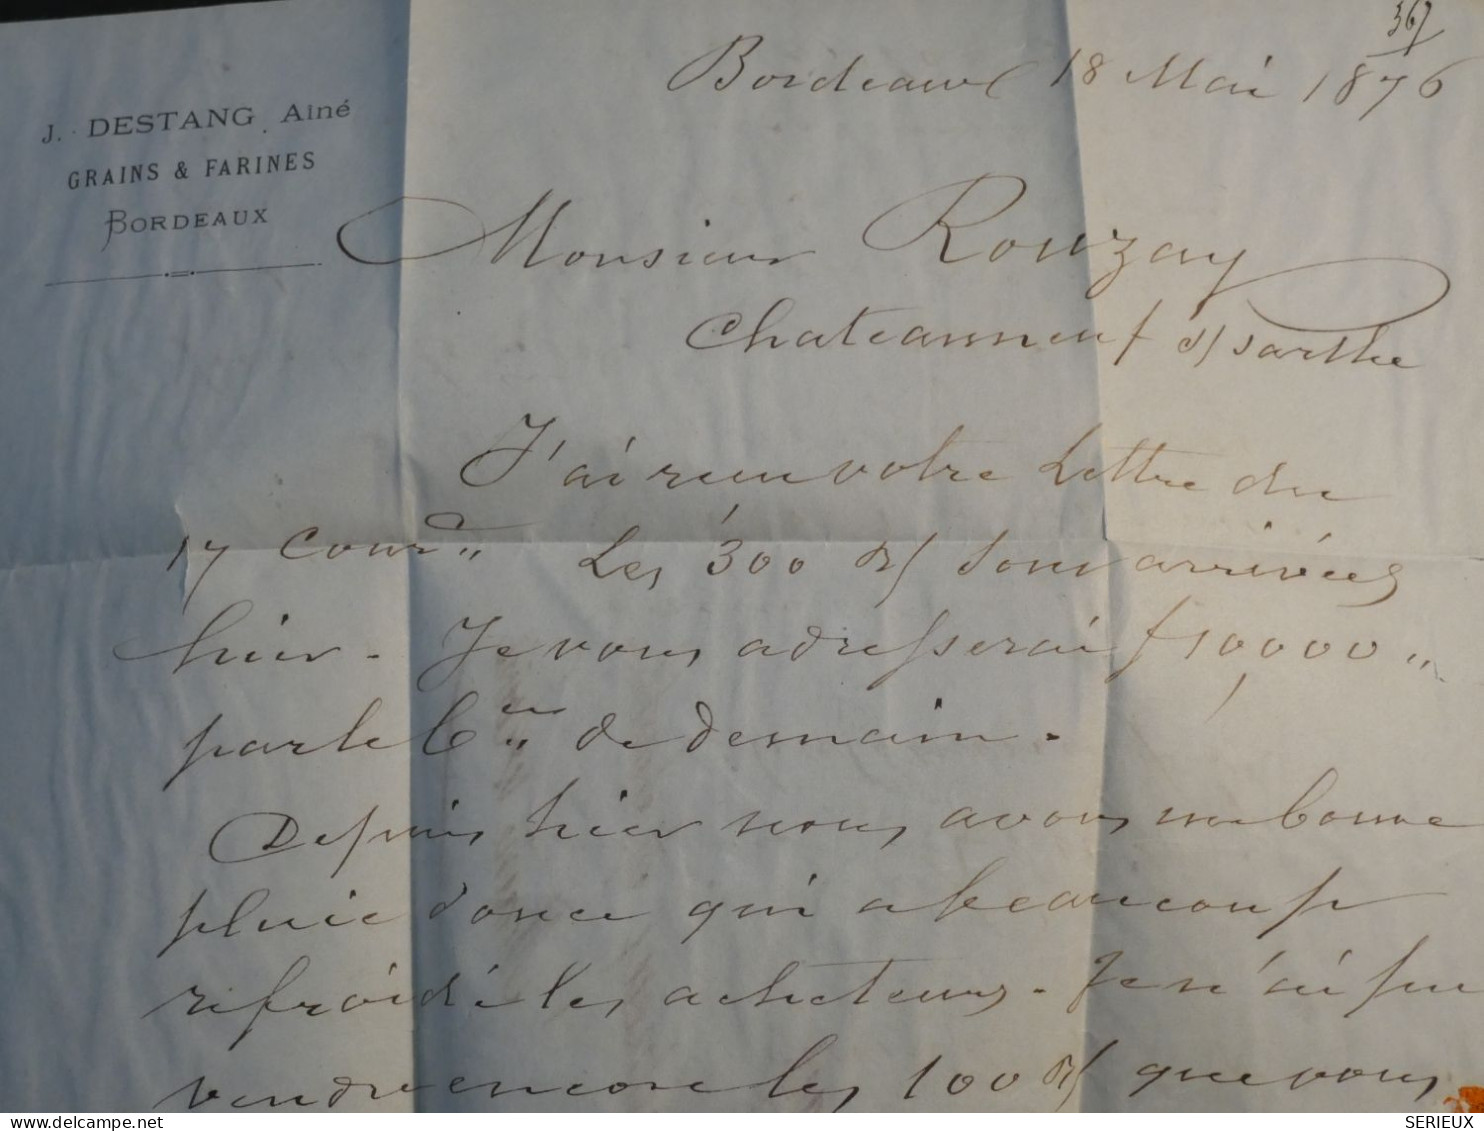 367
Bordeaux 18 Mai 1876
J. DESTANG Ainé
GRAINS & FARINES
BORDEAUX
Monsieur Rouzay
Chateauneuf s/ Sarthe
J'ai reçu votre Lettre du
17 Cour Les 300 s/ sont arrivées
hier. Je vous adresserai f 10,000 "
par le de demain.
Depuis hier nous avons une bonne
pluie douce qui a beaucoup
refroidi les acheteurs. Je n'ai pu
vendre encore les 100 s/ que vous
SERIEUX